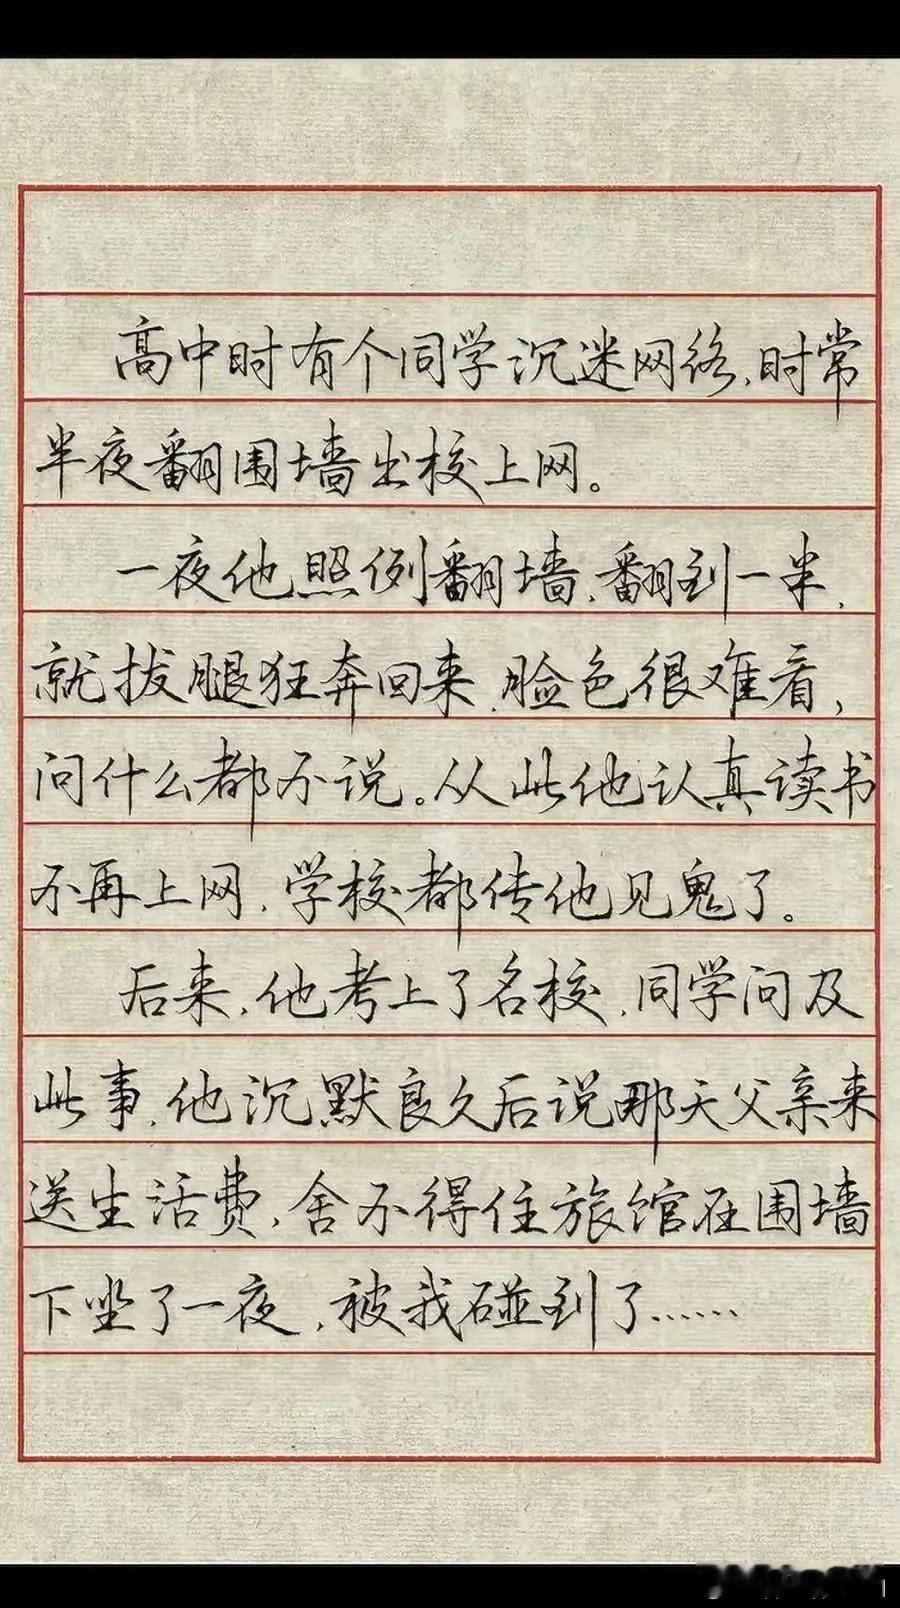 高中时有个同学沉迷网络,时常
半夜翻围墙出校上网。
一夜他照例翻墙,翻到一半,
就拔腿狂奔回来,脸色很难看,
问什么都不说。从此他认真读书
不再上网,学校都传他见鬼了。
后来,他考上了名校,同学问及
此事,他沉默良久后说那天父亲来
送生活费,舍不得住旅馆在围墙
下坐了一夜,被我碰到了……